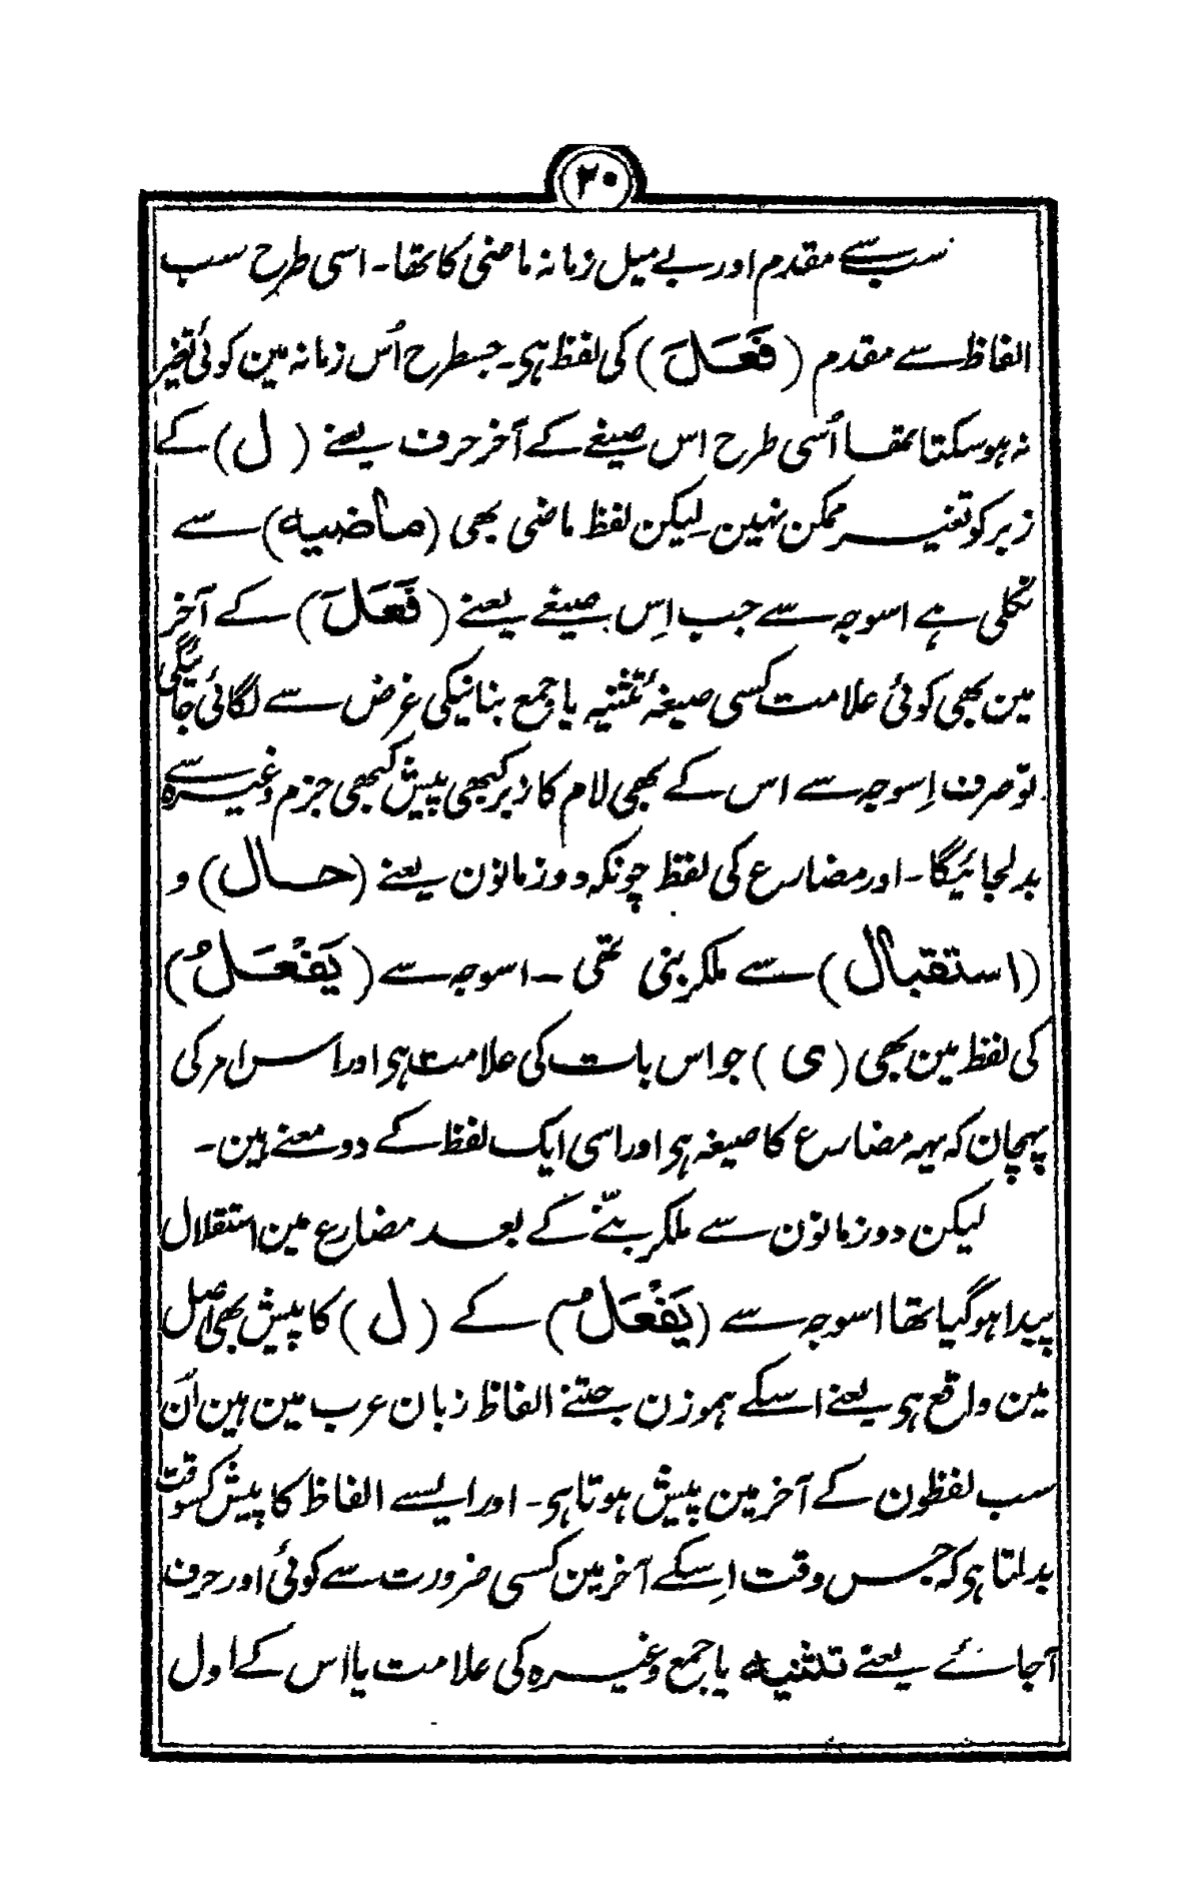 ۲۰
سب سے مقدم اور بے میل زمانہ ماضی کا تھا۔ اسی طرح سب
الفاظ سے مقدم (فَعَلَ) کی لفظ ہی۔ جسطرح اُس زمانہ مین کوئی تغیر
نہ ہو سکتا تھا اُسی طرح اس صیغے کے آخر حرف یعنے (ل) کے
زبر کو تغیر ممکن نہین۔ لیکن لفظ ماضی بھی (ماضیہ) سے
نکلی ہے اسوجہ سے جب اِس صیغے یعنے (فَعَلَ) کے آخر
مین بھی کوئی علامت کسی صیغۂ تثنیہ یا جمع بنانیکی غرض سے لگائی جائیگی
تو صرف اِسوجہ سے اس کے بھی لام کا زبر کبھی پیش کبھی جزم وغیرہ سے
بدلجائیگا۔ اور مضارع کی لفظ چونکہ دو زمانون یعنے (حال) و
(استقبال) سے ملکر بنی تھی ۔ اسوجہ سے (یَفْعَلُ)
کی لفظ مین بھی (ی) جو اس بات کی علامت ہی اور اس امر کی
پہچان کہ یہہ مضارع کا صیغہ ہی اور اسی ایک لفظ کے دو معنے ہین۔
لیکن دو زمانون سے ملکر بنّے کے بعد مضارع مین استقلال
پیدا ہو گیا تھا اسوجہ سے (یَفْعَلُ) کے (ل) کا پیش بھی اصل
مین واقع ہی یعنے اسکے ہموزن جتنے الفاظ زبان عرب مین ہین اُن
سب لفظون کے آخر مین پیش ہوتا ہی۔ اور ایسے الفاظ کا پیش کسوقت
بدلتا ہی کہ جس وقت اِسکے آخر مین کسی ضرورت سے کوئی اور حرف
آجائے یعنے تثنیہ یا جمع وغیرہ کی علامت یا اس کے اول